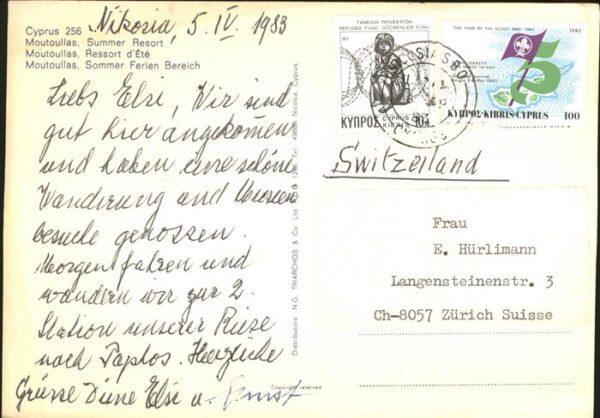 Cyprus 256
Moutoullas, Summer Resort
Moutoullas, Ressort d'Été
Moutoullas, Sommer Ferien Bereich
Nikosia, 5. IV 1983
Liebs Elsi, Wir sind
gut hier angekommen
und haben eine schöne
Wanderung und Museen
besuche genossen.
Morgen fahren und
wandern wir zur 2.
Station unserer Reise
nach Paphos. Herzliche
Grüsse Deine Elsi u. Ernst
Distributors: N.G. TRIARCHOS & Co Ltd. P.O.B. Tel. Nicosia, Cyprus
Copyright reserved
ΤΑΜΕΙΟΝ ΠΡΟΣΦΥΓΩΝ
REFUGEE FUND GÖÇMENLER FONU
ΚΥΠΡΟΣ CYPRUS KIBRIS 10
THE YEAR OF THE SCOUT 1982-1983
1982
ΚΥΠΡΟΣ·KIBRIS·CYPRUS 100
Switzerland
Frau
E. Hürlimann
Langensteinenstr. 3
Ch-8057 Zürich Suisse